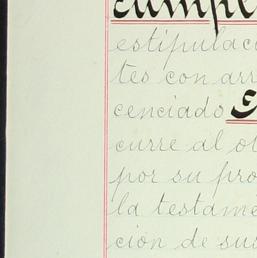 cumpl
estipulaci
tes con arr
cenciado
curre al ot
por su pro
la testame
ción de sus